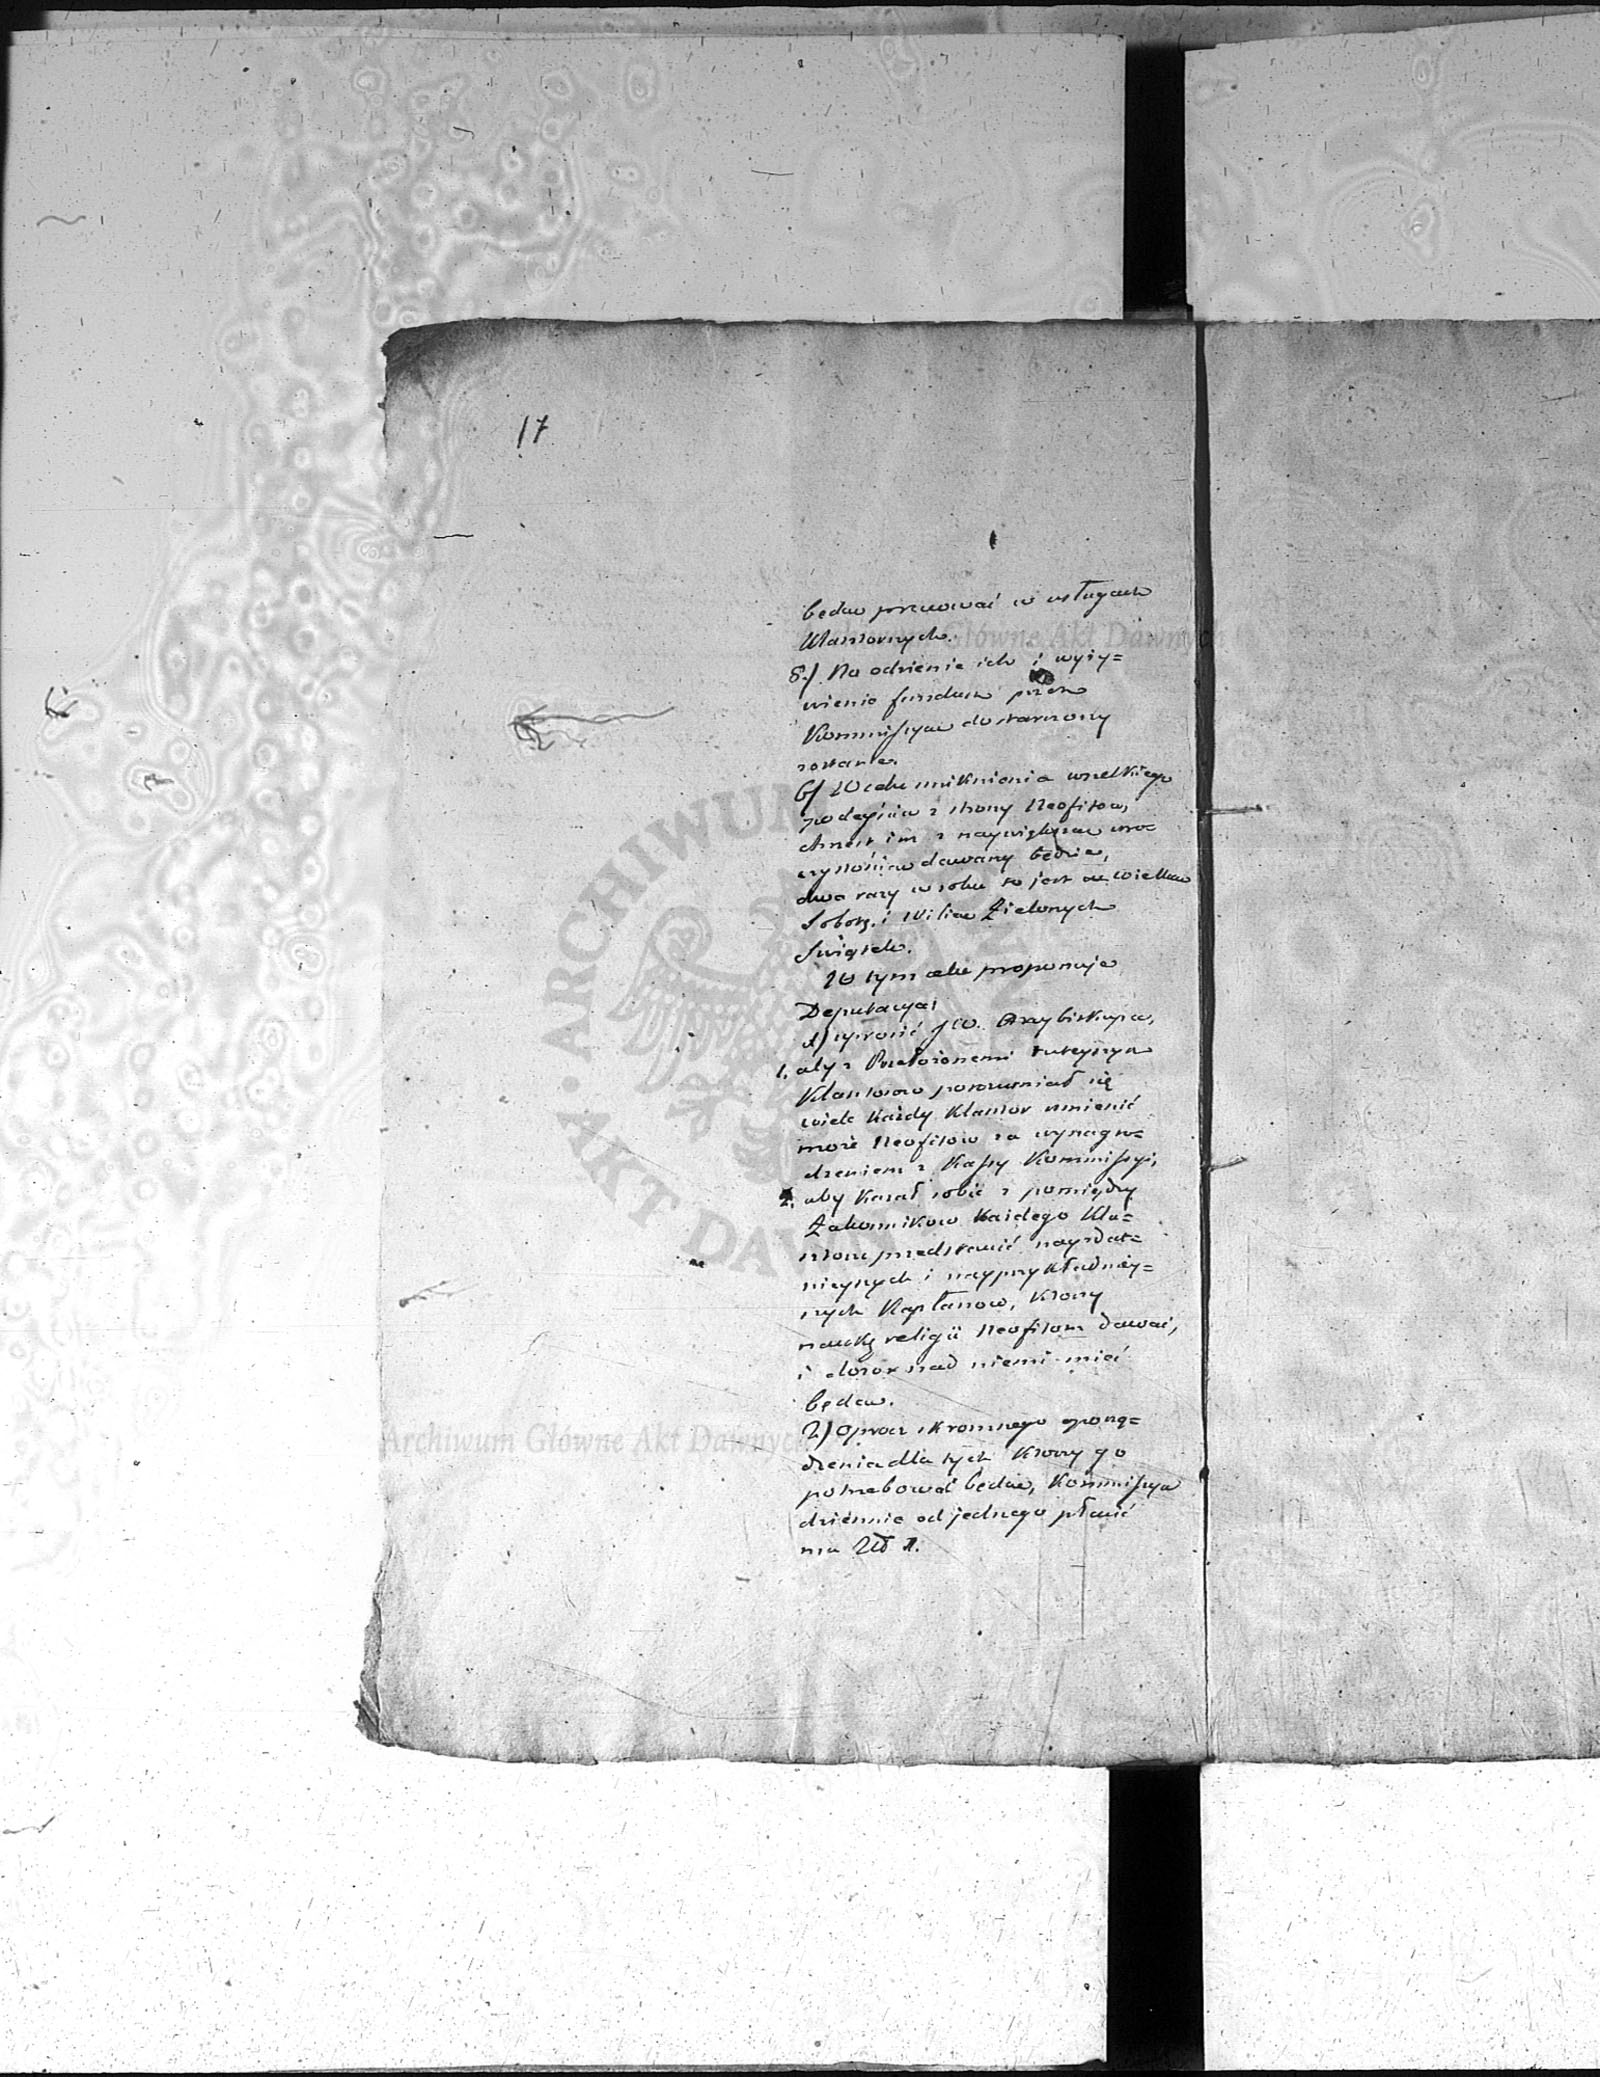 17
będą pracować w usługach
Klasztornych.
8.) Na odzienie ich i wyży=
wienie fundusz przez
Kommissyą dostarczony
zostanie.
6) W celu uniknienia wszelkiego
podeyścia z strony Neofitow,
chrzest im z naywiększą uro=
czystością dawany będzie,
dwa razy w roku to jest w wielką
Sobotę i Wilią Zielonych
Świątek.
W tym celu proponuje
Deputacya:
1) uprosić JW. Arcybiskupa,
1. aby z Przełożonemi tuteyszych
Klasztorow porozumiał się
wiele każdy Klasztor umieścić
może Neofitow za wynagro=
dzeniem z Kassy Kommissyi,
2. aby kazał sobie z pomiędzy
Zakonnikow każdego Kla=
sztoru przedstawić nayzdat=
nieyszych i nayprzykładniey=
szych Kapłanow, ktorzy
naukę religii Neofitom dawać,
i dozor nad niemi mieć
będą.
2) Oprocz skromnego oporzą=
dzenia dla tych ktorzy go
potrzebować będą, Kommissya
dziennie od jednego płacić
ma Zł 1.
Archiwum Główne Akt Dawnych
Archiwum Główne Akt Dawnych
ARCHIWUM
AKT DAWN